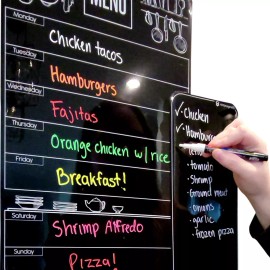 MENU
Monday
Chicken tacos
Tuesday
Hamburgers
Wednesday
Fajitas
Thursday
Orange chicken w/ rice
Friday
Breakfast!
Saturday
Shrimp Alfredo
Sunday
Pizza!
✓ Chicken
✓ Hamburger
- tomato
- Shrimp
- Ground meat
- onions
- garlic
- frozen pizza